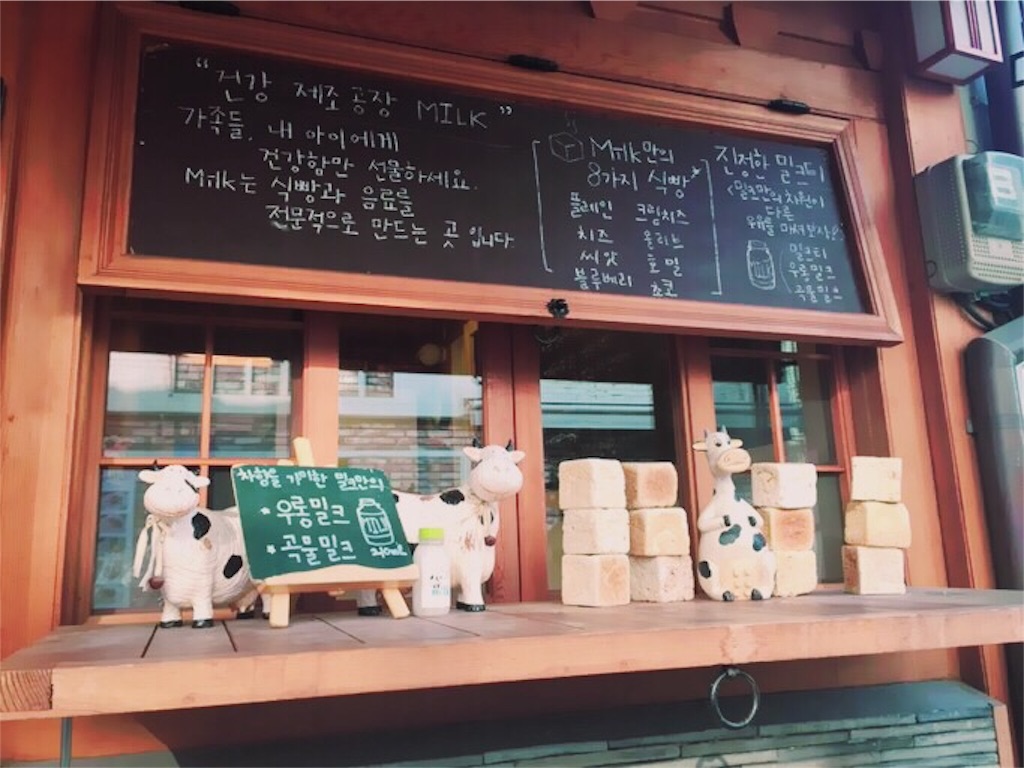 "건강 제조 공장 MILK"
가족들, 내 아이에게
건강함만 선물하세요.
Milk는 식빵과 음료를
전문적으로 만드는 곳 입니다
Milk만의
8가지 식빵
플레인 크림치즈
치즈 올리브
씨앗 호밀
블루베리 쵸코
진정한 밀크티
밀크만의 차원이
다른
밀크티
우롱밀크
곡물밀크
차향을 가미한 밀크만의
* 우롱밀크
* 곡물밀크